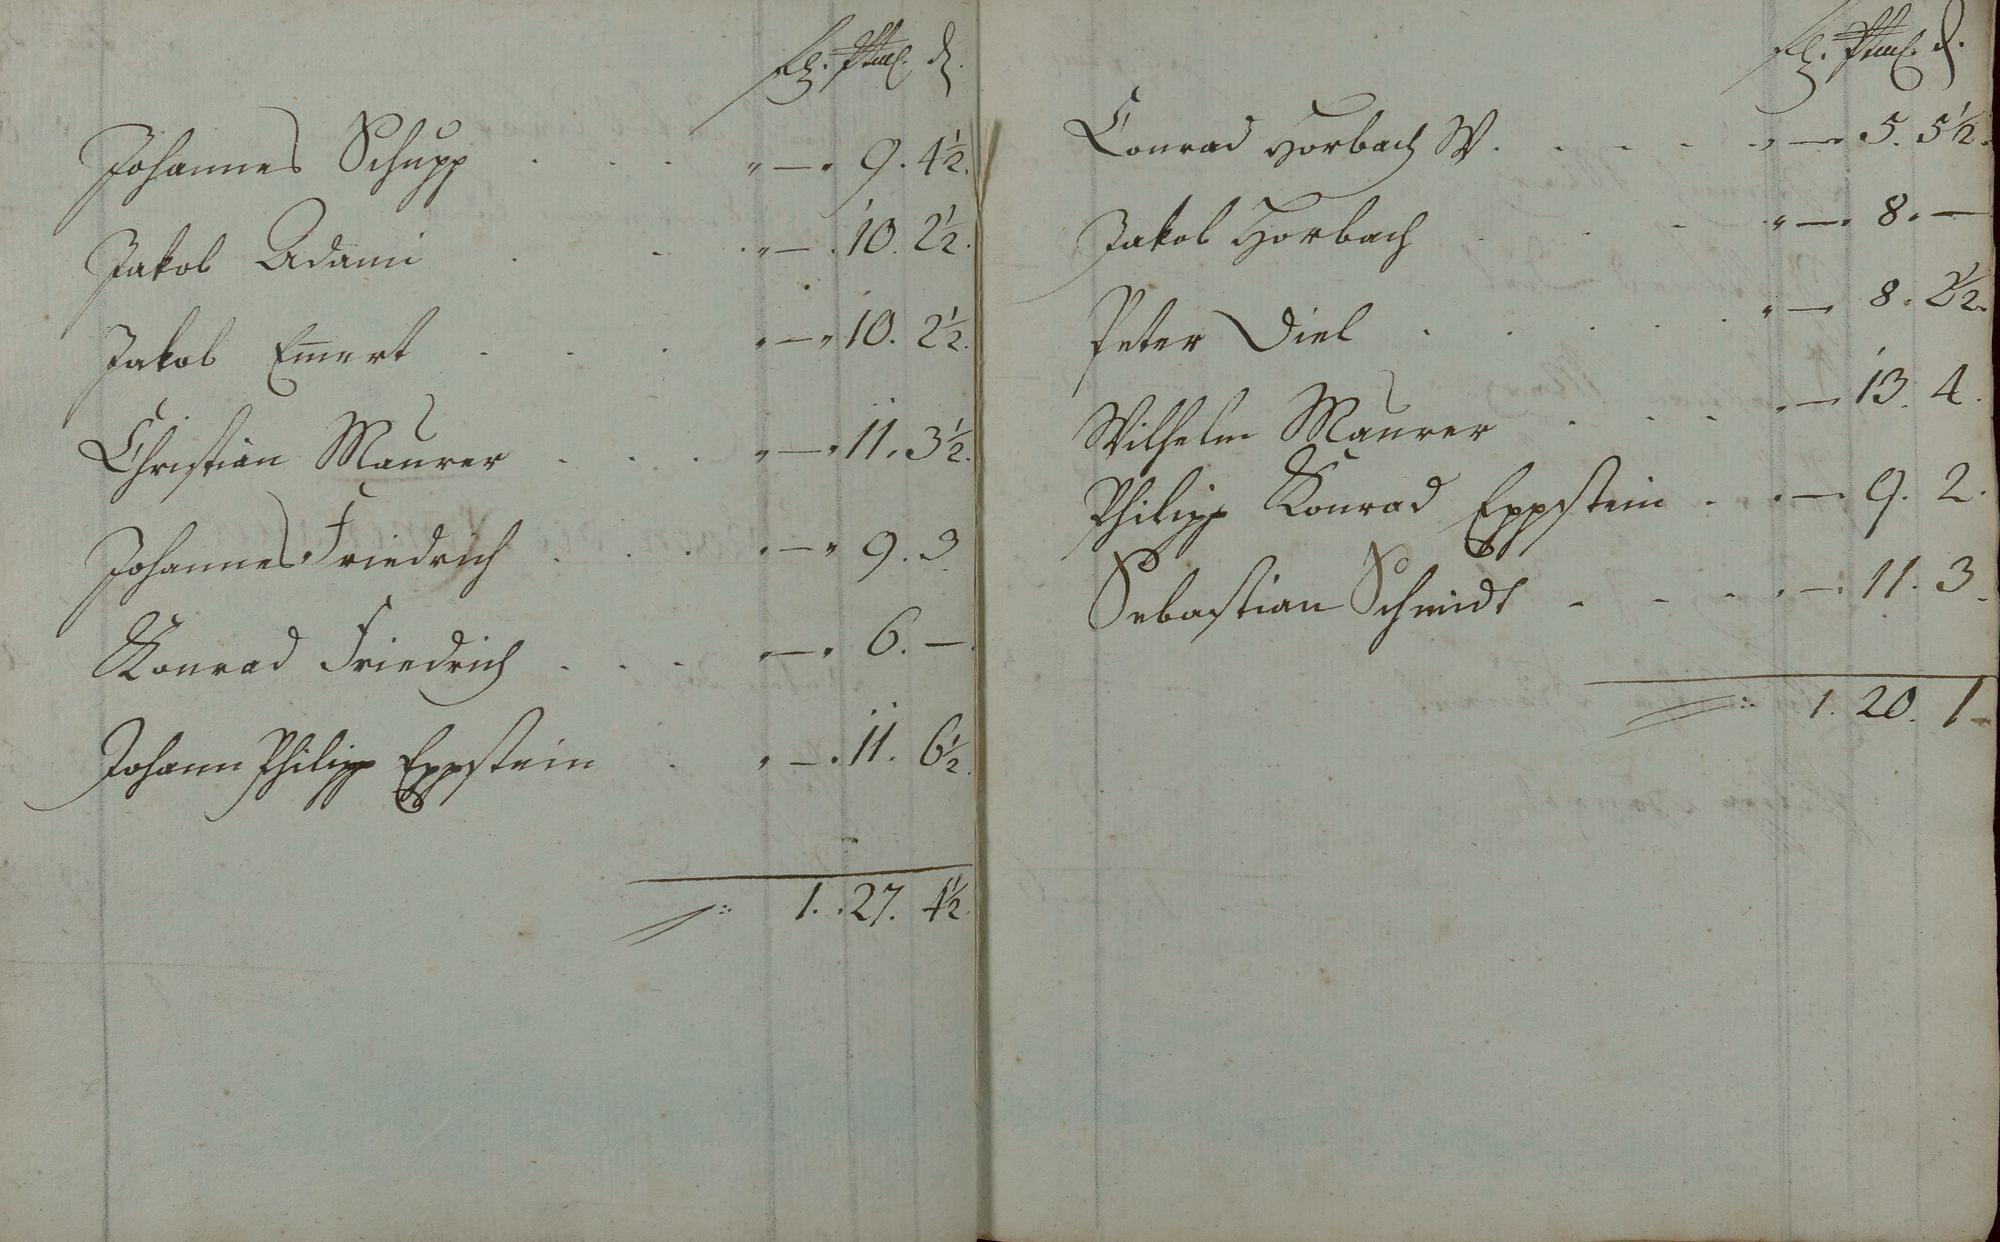 fl. d.
Johannes Schupp . . . " — " 9. 4½.
Jakob Adami . . . " — . 10. 2½.
Jakob Em̄ert . . . " — " 10. 2½.
Christian Maurer . . . " — " 11. 3½.
Johannes Friedrich . . . " — " 9. 3.
Konrad Friedrich . . . " — " 6. —
Johann Philipp Eppstein . " — . 11. 6½.
1. . 27. 4½.
fl. d.
Conrad Horbach W. . . . . " — " 5. 5½.
Jakob Horbach . . . " — " 8. —
Peter Diel . . . . . " — 8. 2½.
Wilhelm Maurer . . . . — 13. 4.
Philipp Konrad Eppstein . . — . 9. 2.
Sebastian Schmidt . . . . — . 11. 3.
1. 20. 1